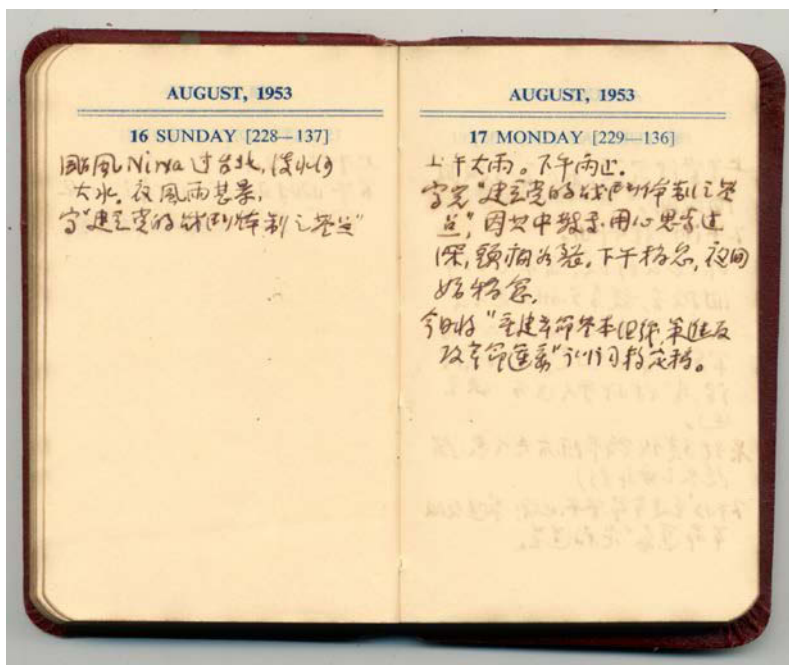 AUGUST, 1953
16 SUNDAY [228—137]
颱風Nina过台北,淡水河
大水。夜風雨甚暴,
写"建立党的战鬥体制之基点"
AUGUST, 1953
17 MONDAY [229—136]
上午大雨。下午雨止。
写完"建立党的战鬥体制之基
点",因其中数字用心思考过
深,頭痛如裂。下午稍念,夜间
始稍念。
今日将"重建革命基本组织,策進反
攻革命運動"訓词稿定稿。